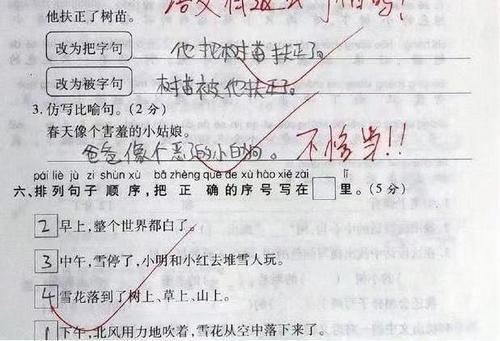 他扶正了树苗。
改为把字句 他把树苗扶正了。
改为被字句 树苗被他扶正了。
3. 仿写比喻句。(2 分)
春天像个害羞的小姑娘。
爸爸像个 的小白狗。 不恰当!!
pái liè jù zi shùn xù bǎ zhèng què de xù hào xiě zài lǐ
六、排列句子 顺序,把 正 确的序号写在 里。(5 分)
2 早上,整个世界都白了。
3 中午,雪停了,小明和小红去堆雪人玩。
4 雪花落到了树上、草上、山上。
1 下午,北风用力地吹着,雪花从空中落下来了。